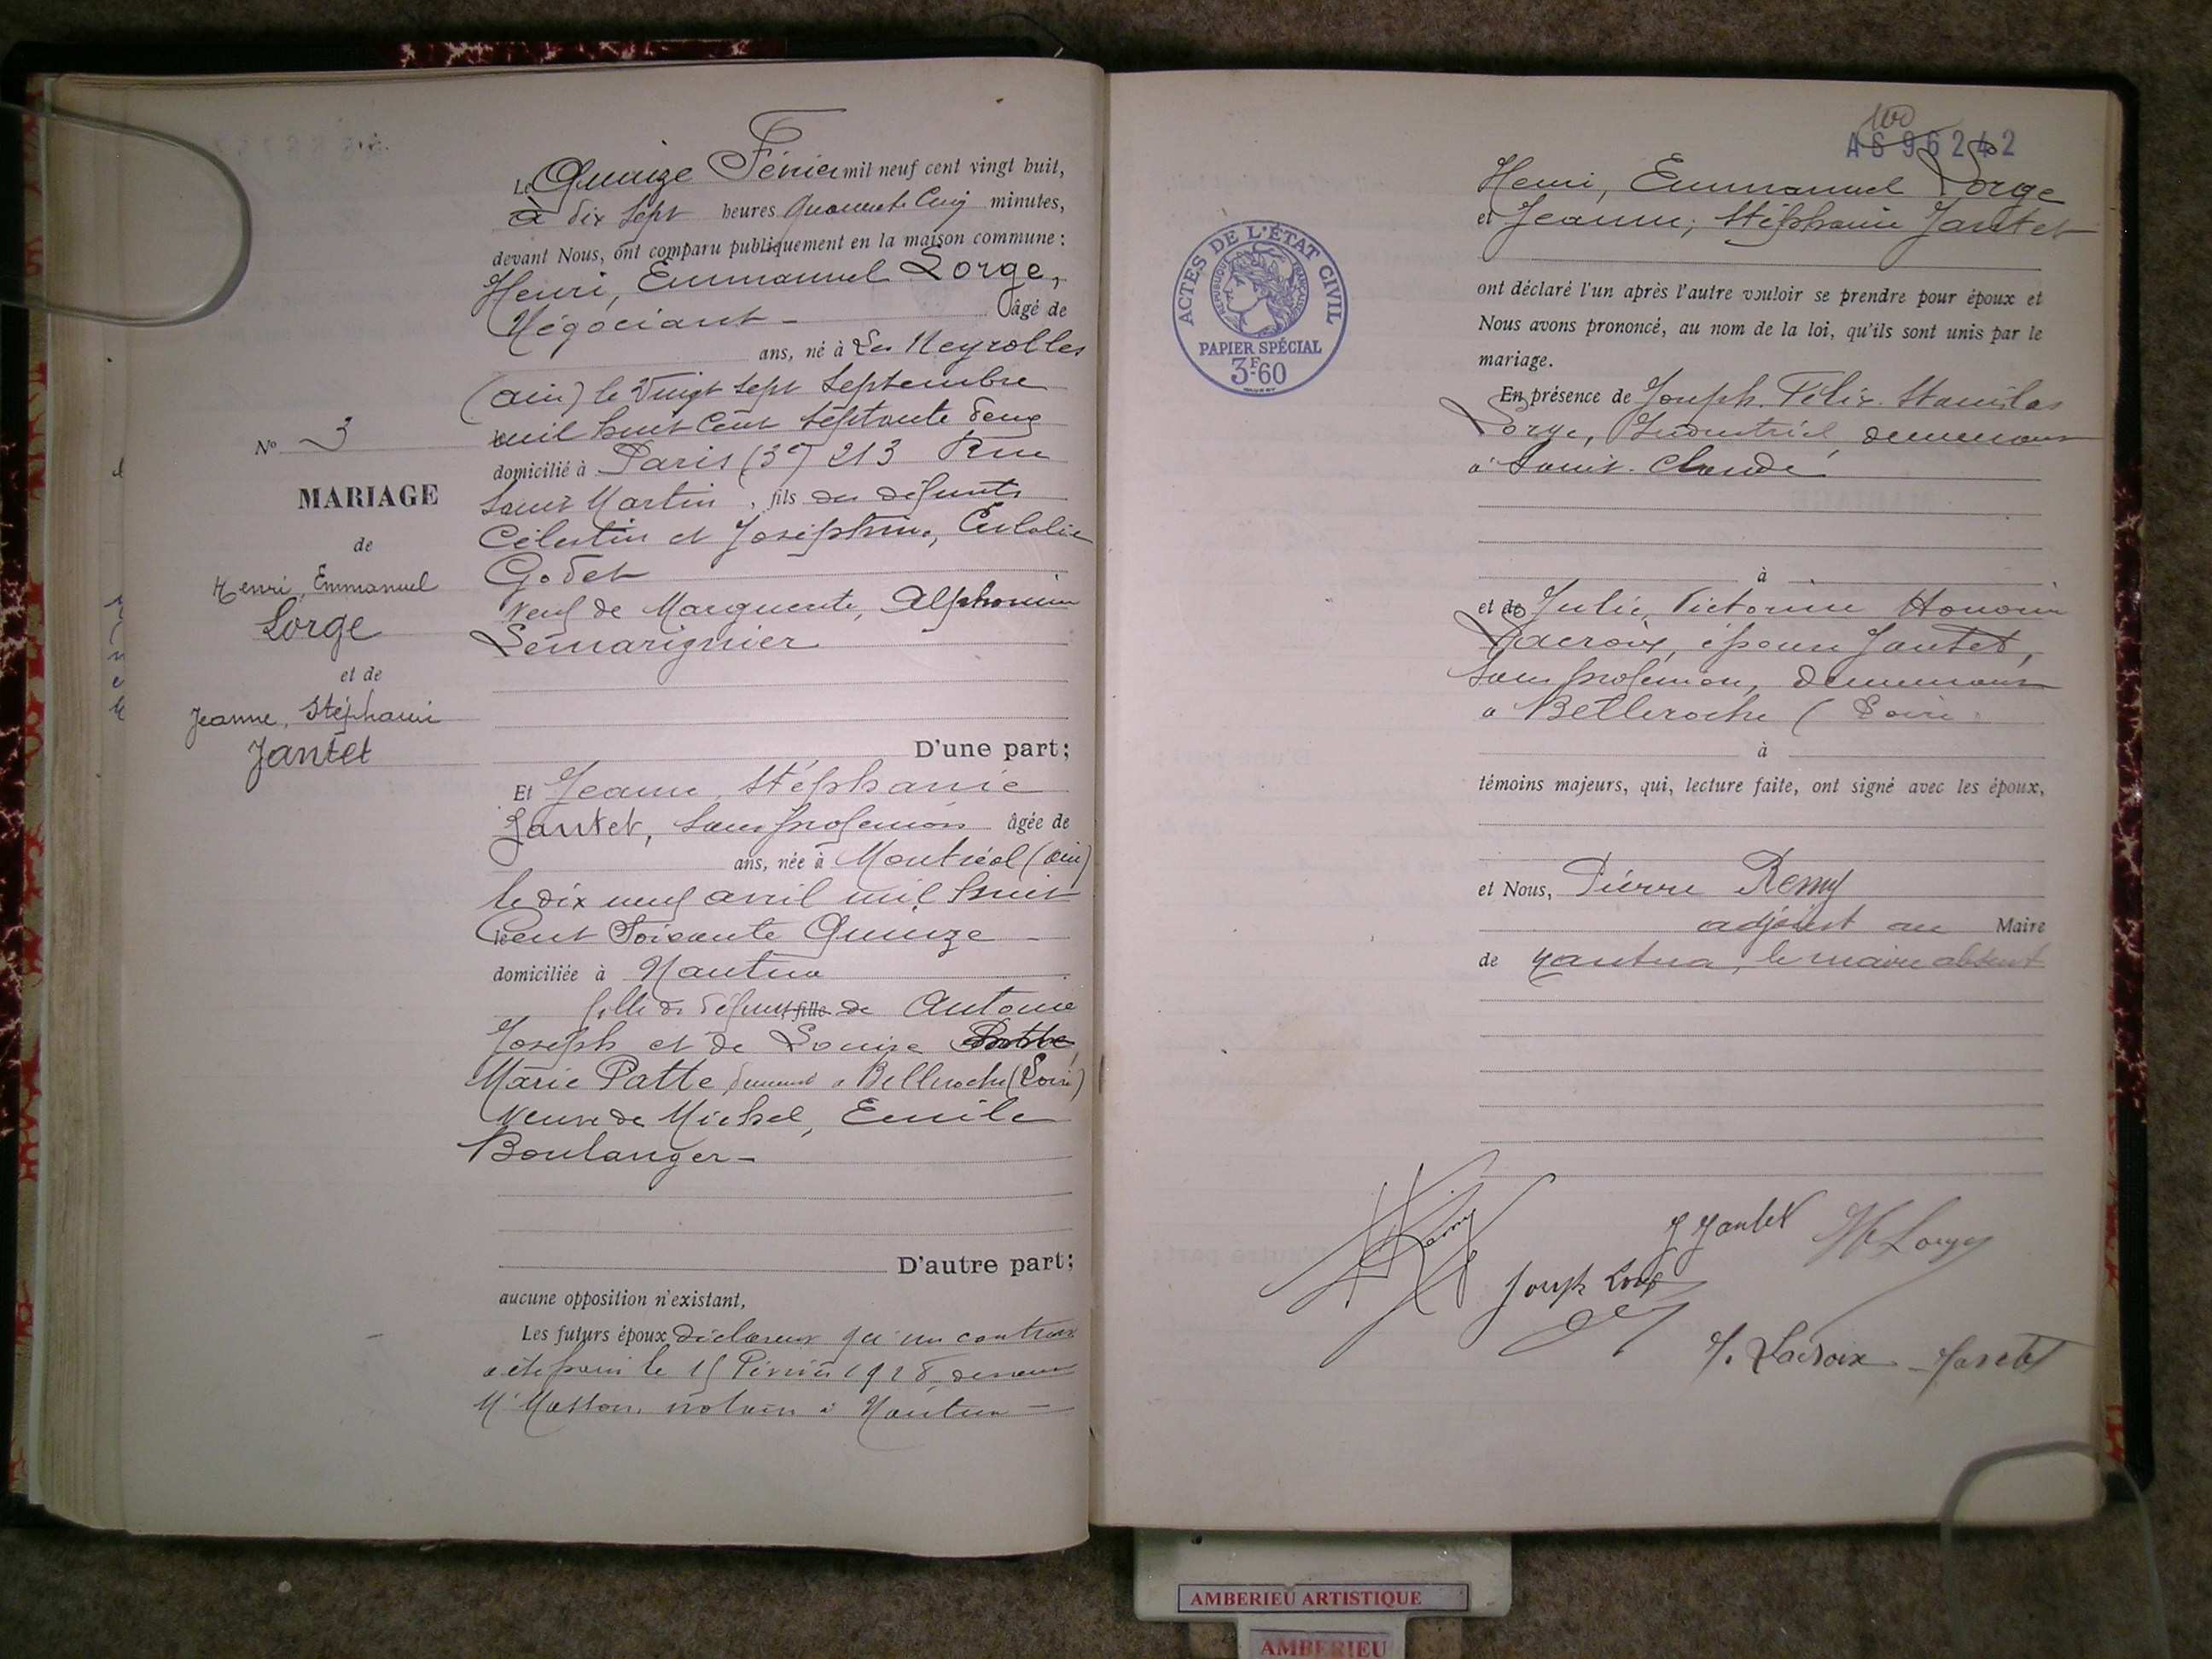 N° 3
MARIAGE
de
Henri, Emmanuel
Lorge
et de
Jeanne, Stéphanie
Jantet
Le Quinze Février mil neuf cent vingt huit,
à dix sept heures quarante cinq minutes,
devant Nous, ont comparu publiquement en la maison commune :
Henri, Emmanuel Lorge,
Négociant - âgé de
ans, né à Les Neyrolles
(ain) le vingt sept Septembre
mil huit cent septante deux
domicilié à Paris (3e) 213 Rue
Saint Martin, fils des défunts
Célestin et Joséphine, Eulalie
Godet
veuf de Marguerite, Alphonsine
Lémarignier
D'une part;
Et Jeanne, Stéphanie
Jantet, sans profession âgée de
ans, née à Montréal (ain)
le dix neuf avril mil huit
cent soixante Quinze -
domiciliée à Nantua
fille de défunt fille de Antoine
Joseph et de Louise Patte
Marie Patte, demeurant à Belleroche (Loire)
veuve de Michel, Emile
Boulanger -
D'autre part;
aucune opposition n'existant,
Les futurs époux déclarent qu'un contrat
a été passé le 15 Février 1928, devant
Me Masson, notaire à Nantua -
100
AS96242
ACTES DE L'ÉTAT CIVIL
RÉPUBLIQUE FRANÇAISE
PAPIER SPÉCIAL
3F60
Henri, Emmanuel Lorge
et Jeanne, Stéphanie Jantet
ont déclaré l'un après l'autre vouloir se prendre pour époux et
Nous avons prononcé, au nom de la loi, qu'ils sont unis par le
mariage.
En présence de Joseph. Félix. Stanislas
Lorge, Industriel, demeurant
à Saint-Claude
à
et de Julie, Victorine Honorine
Lacroix, épouse Jantet,
sans profession, demeurant
à Belleroche (Loire)
à
témoins majeurs, qui, lecture faite, ont signé avec les époux,
et Nous, Pierre Remy
adjoint au Maire
de Nantua, le maire absent
Remy
J Jantet
H Lorge
Joseph Lorge
J. Lacroix - Jantet
AMBERIEU ARTISTIQUE
AMBERIEU